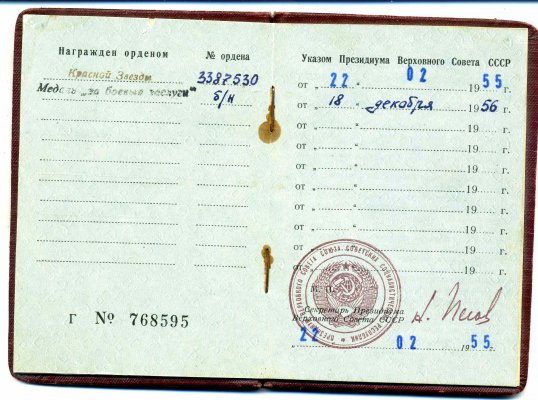 Награжден орденом
№ ордена
Красной Звезды
3387530
Медаль „за боевые заслуги"
б/н
г № 768595
Указом Президиума Верховного Совета СССР
от „ 22 " 02 1955 г.
от „ 18 " декабря 1956 г.
от „ " 19 г.
от „ " 19 г.
от „ " 19 г.
от „ " 19 г.
от „ " 19 г.
от „ " 19 г.
от „ " 19 г.
М. П.
Секретарь Президиума
Верховного Совета СССР
22 02 1955